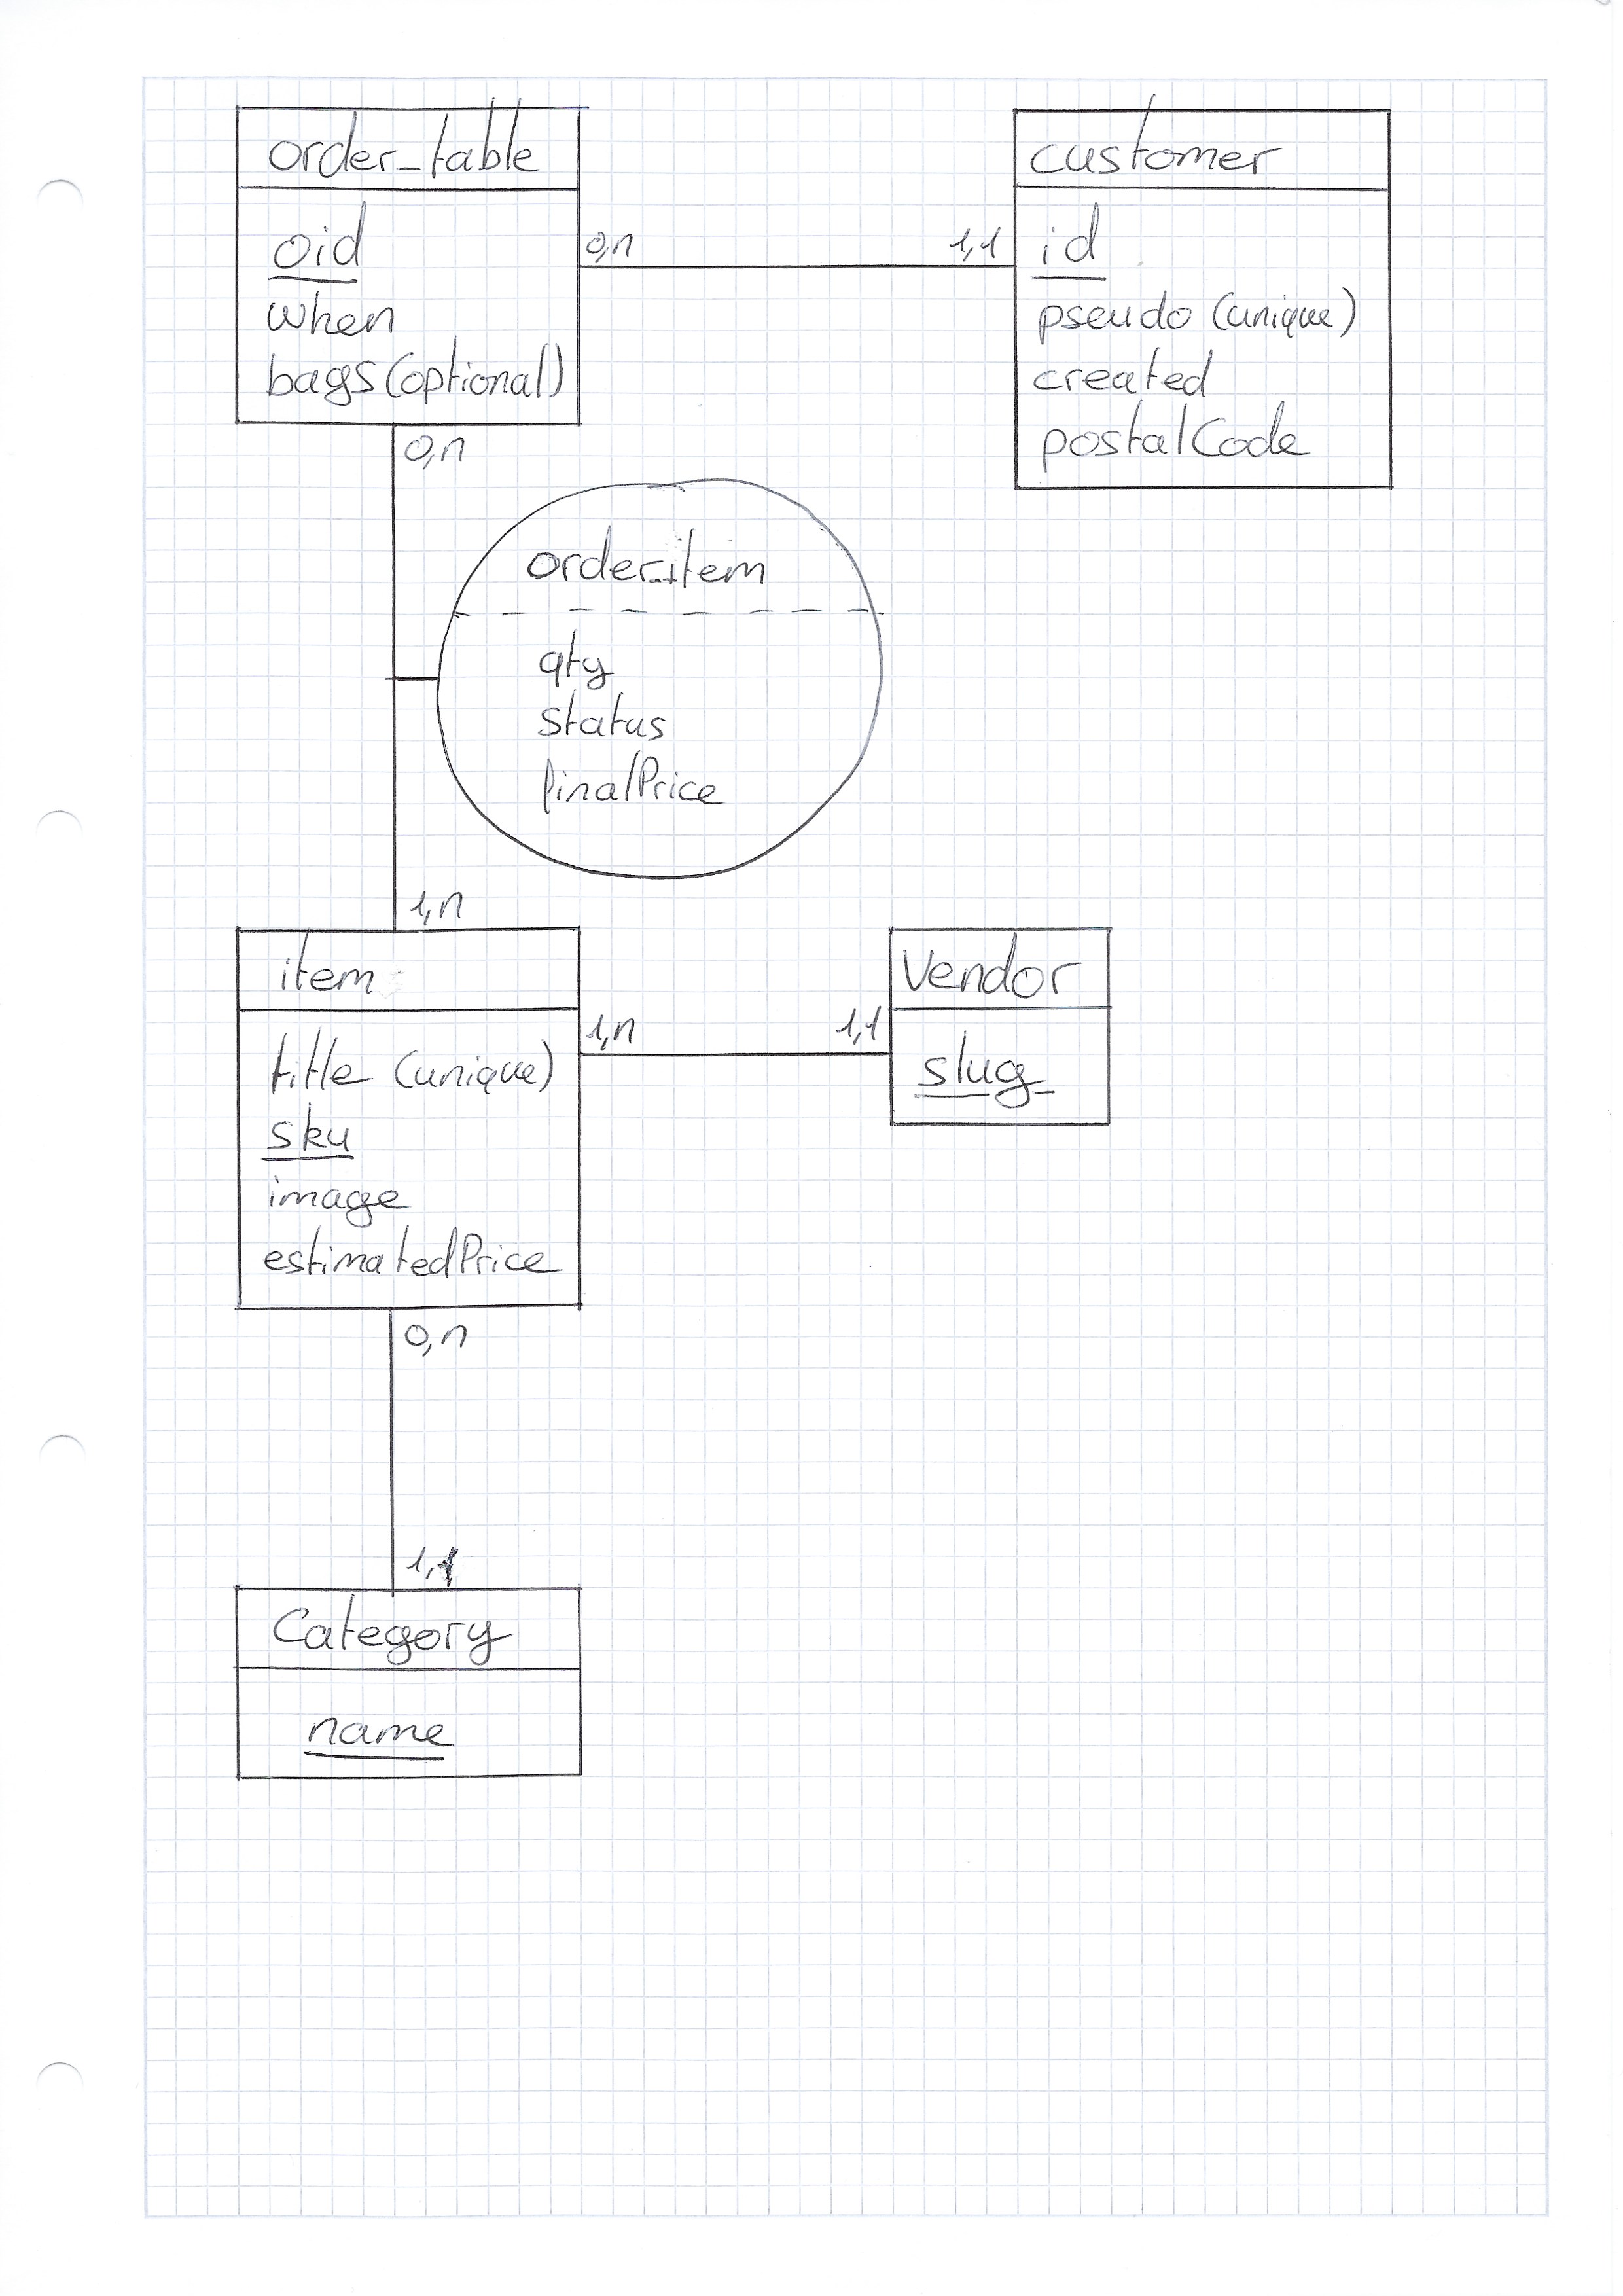 order_table
oid
when
bags (optional)
0,n
1,1
customer
id
pseudo (unique)
created
postalCode
0,n
order_item
qty
status
finalPrice
1,n
item
title (unique)
sku
image
estimatedPrice
1,n
1,1
Vendor
slug
0,n
1,1
Category
name